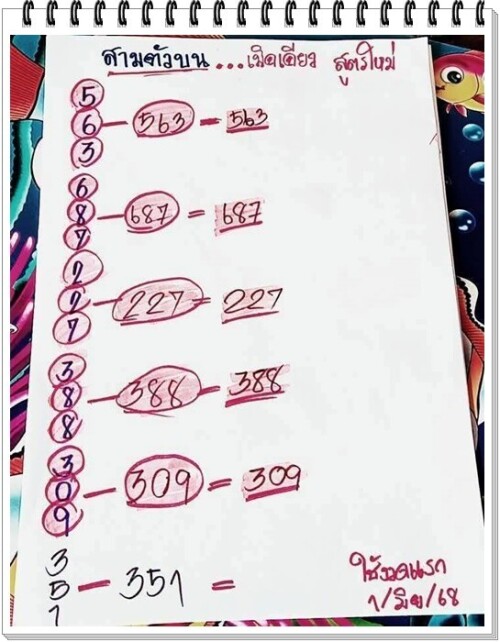 สามตัวบน...เม็ดเดียว สูตรใหม่
5
6 - 563 = 563
3
6
8 - 687 = 687
7
2
2 - 227 = 227
7
3
8 - 388 = 388
8
3
0 - 309 = 309
9
3
5 - 351 =
1
ใช้งวดแรก
1/มิย/68